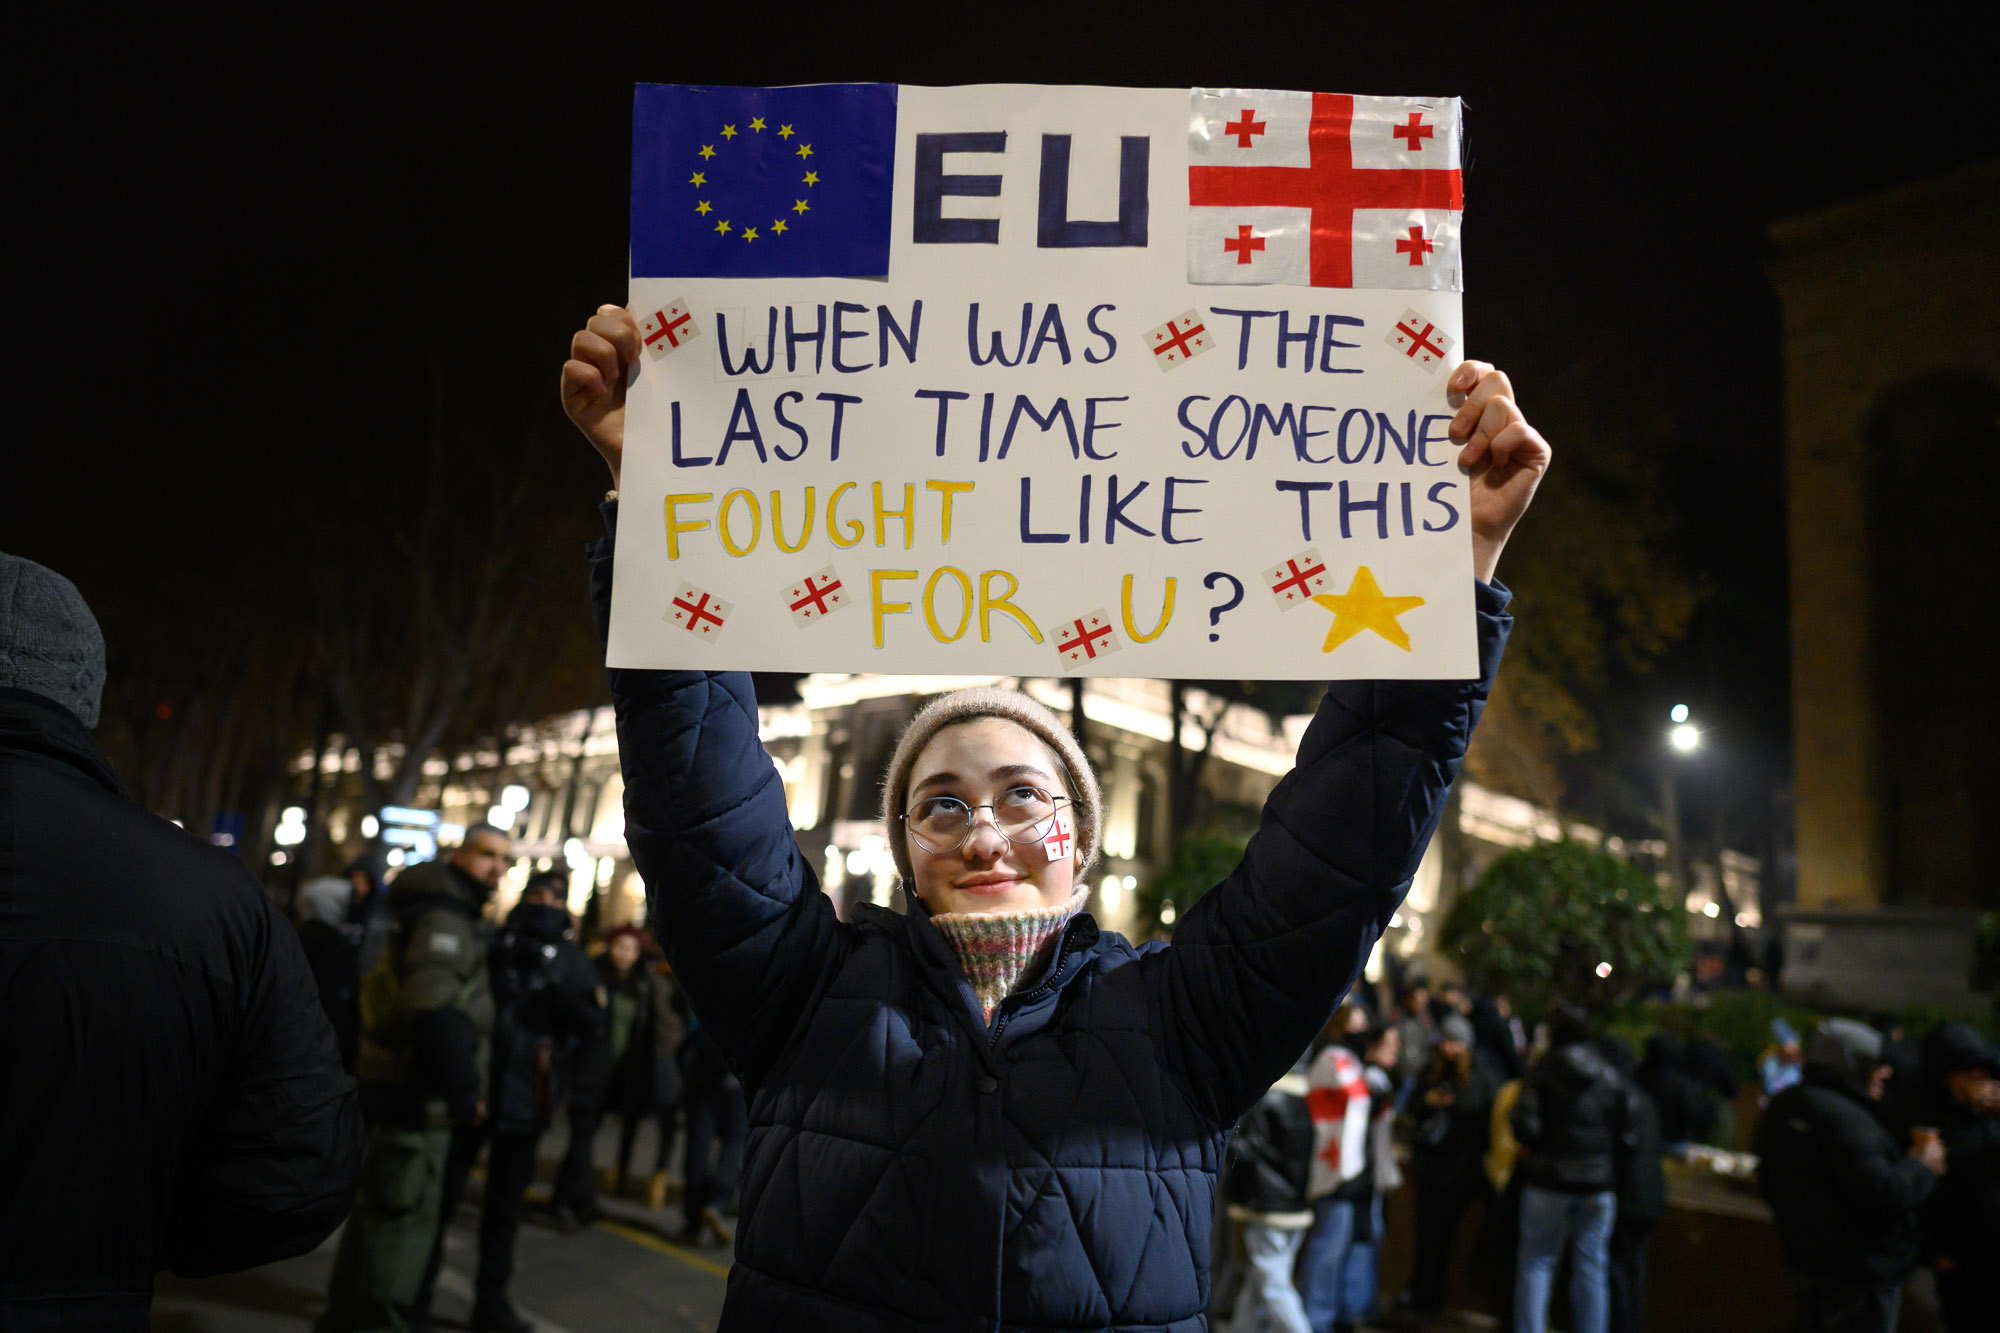 EU
WHEN WAS THE
LAST TIME SOMEONE
FOUGHT LIKE THIS
FOR U?